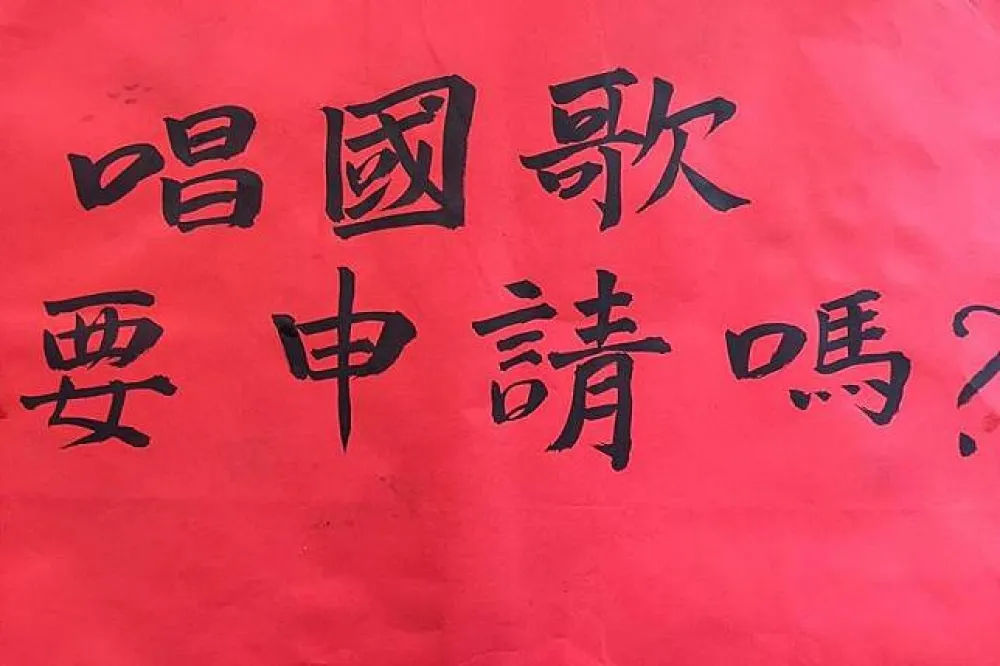 唱國歌
要申請嗎?